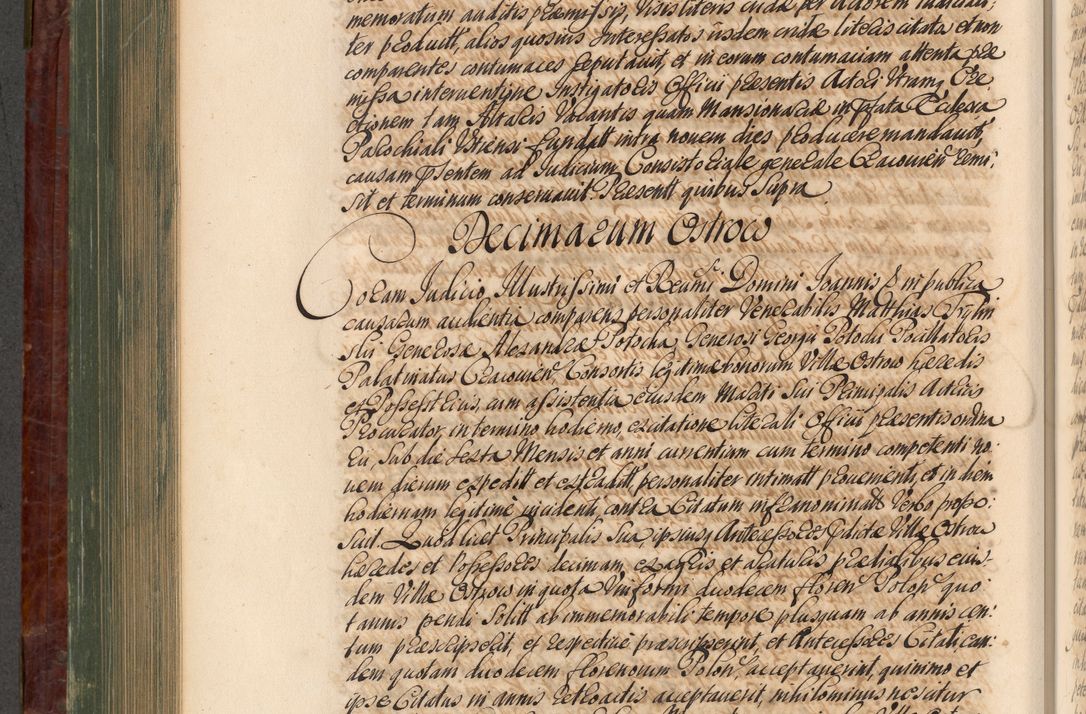 memoratum auditis præmissis, visis literis cridæ per Actorem Judicial:
ter product, alios quosvis Interessatos iisdem cridæ literis citatos et non
comparentes contumaces reputavit, et in eorum contumaciam attenta præ
missa interventione Instigatoris Officii præsentis Actori utramq Ere
ctionem tam Altaris Vacantis quam Mansionariæ in Pfata Ecclesia
Parochiali fundatt intra novem dies producere mandavit,
causam Pntem ad Judicium Consistoriale generale Cracovien remi
sit et terminum conservavit. Præsentt quibus supra
Decimarum Ostrow
Coram Judicio Illustrissimi et Reumi Domini Joannis in publica
causarum audientia comparens personaliter Venerabilis Matthias
ski Generosæ Alexandræ Potocka, Generosi Georgii Potocki Pocillatoris
Palatinatus Cracovien, Consortis legitimæ bonorum Villæ Ostrow hæredis
et Possesstricis, cum assistentia eiusdem Mariti sui Principalis Actricis
Procurator, in termino hodierno, ex citatione literali Officii præsentis ordina
rii, sub die sexta Mensis et anni currentium cum termino competenti no
vem dierum expeditt et extraditt, personaliter intimatt provenienti, et in diem
hodiernam legitime incidenti, contra Citatum infranominatt Verbo propo:
suit. Quod licet Principalis sua, ipsiusq Antecessores Pdictæ Villæ Ostrow
hæredes et Possessores decimam ex agris et araturis prædialibus eius
dem Villæ Ostrow in quota Uniformi duodecem floren Polon quo
tannis pendi solitt ab immemorabili tempore plusquam ab annis cen:
tum præscripserit, et respective præscripserint, et Antecessores Citati ean:
dem quotam duodecem florenorum Polon acceptaverint, quinimo et
ipse Citatus in annis retroactis acceptaverit, nihilominus nescitur